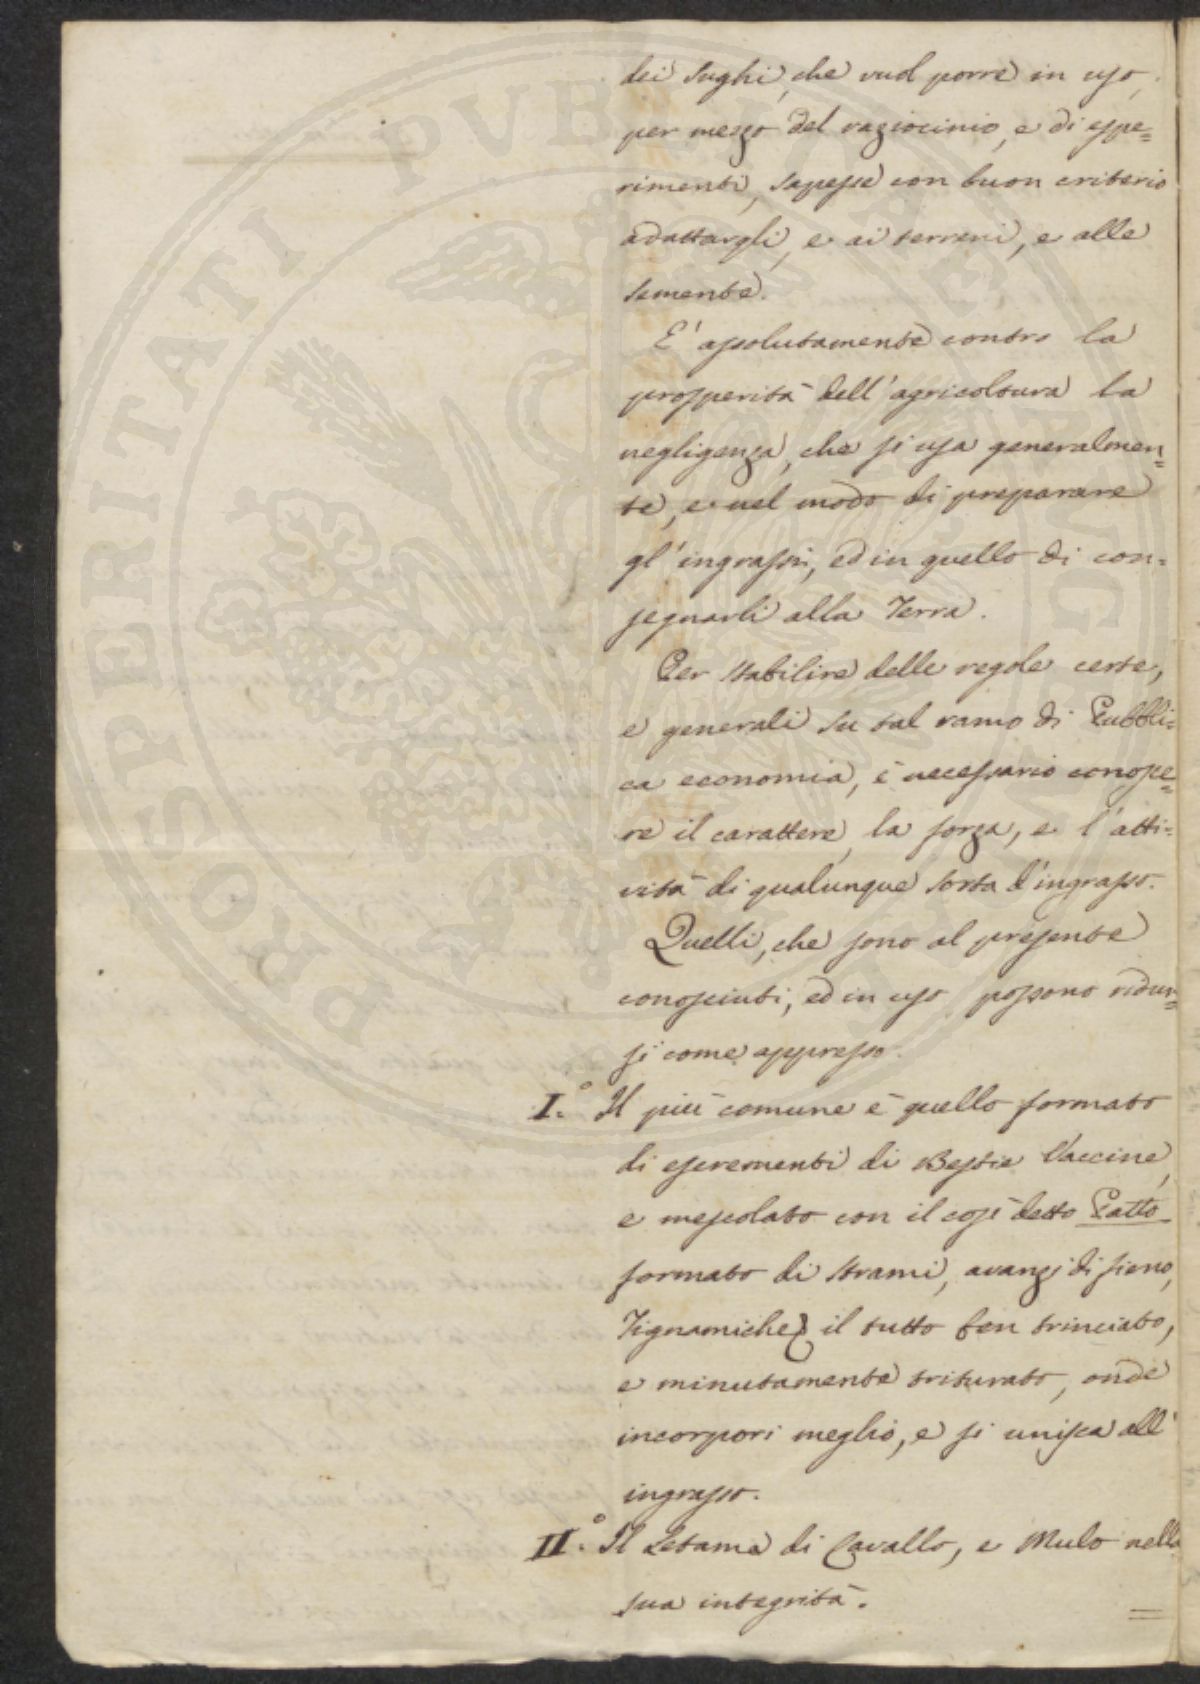 dei sughi, che vuol porre in uso,
per mezzo del raziocinio, e di espe=
rimenti, sapesse con buon criterio
adattargli, e ai terreni, e alle
semente.
E' assolutamente contro la
prosperità dell'agricoltura la
negligenza, che si usa generalmen=
te, e nel modo di preparare
gl'ingrassi, ed in quello di con=
segnarli alla Terra.
Per stabilire delle regole certe,
e generali su tal ramo di Pubbli=
ca economia, è necessario conosce=
re il carattere, la forza, e l'atti=
vità di qualunque sorta d'ingrasso.
Quelli, che sono al presente
conosciuti, ed in uso possono ridur=
si come appresso.
I.° Il più comune è quello formato
di escrementi di Bestie Vaccine,
e mescolato con il così detto Patto
formato di strami, avanzi di fieno,
Tignamiche, il tutto ben trinciato,
e minutamente triturato, onde
incorpori meglio, e si unisca all'
ingrasso.
II.° Il Letame di Cavallo, e Mulo nella
sua integrità.
PROSPERITATI PVBLICAE